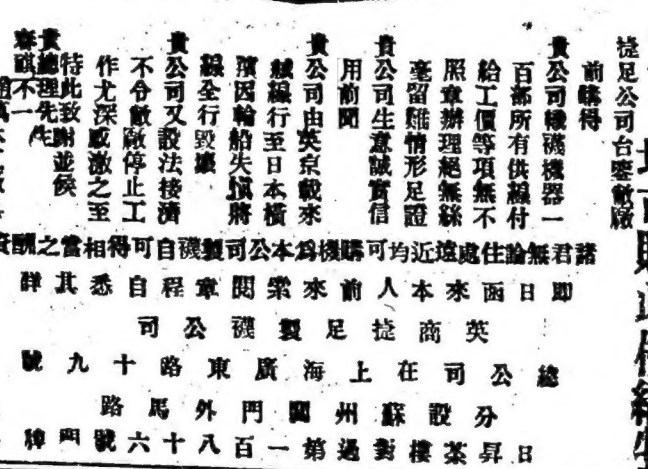 捷足公司台鑒敝廠
前購得
貴公司織襪機器一
百部所有供線付
給工價等項無不
照章辦理絕無絲
毫留難情形足證
貴公司生意誠實信
用前聞
貴公司由英京載來
絨線行至日本橫
濱因輪船失慎將
線全行毀壞
貴公司又設法接濟
不令敝廠停止工
作尤深感激之至
特此致謝並候
貴總理先生
春祺不一
諸君無論住處遠近均可購機爲本公司製襪自可得相當之酬資
即日函來本人前來索閱章程自悉其詳
英商捷足製襪公司
總公司在上海廣東路十九號
分設蘇州閶門外馬路
日昇茶樓對過第一百八十六號門牌